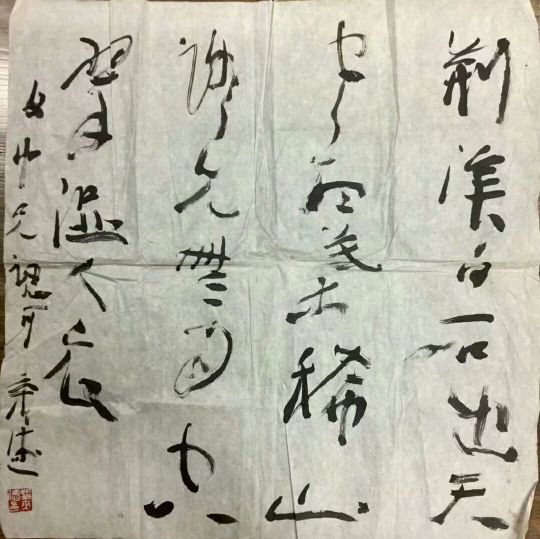 荆溪白石出天
寒红葉稀山
路元無雨空
翠湿人衣
兄